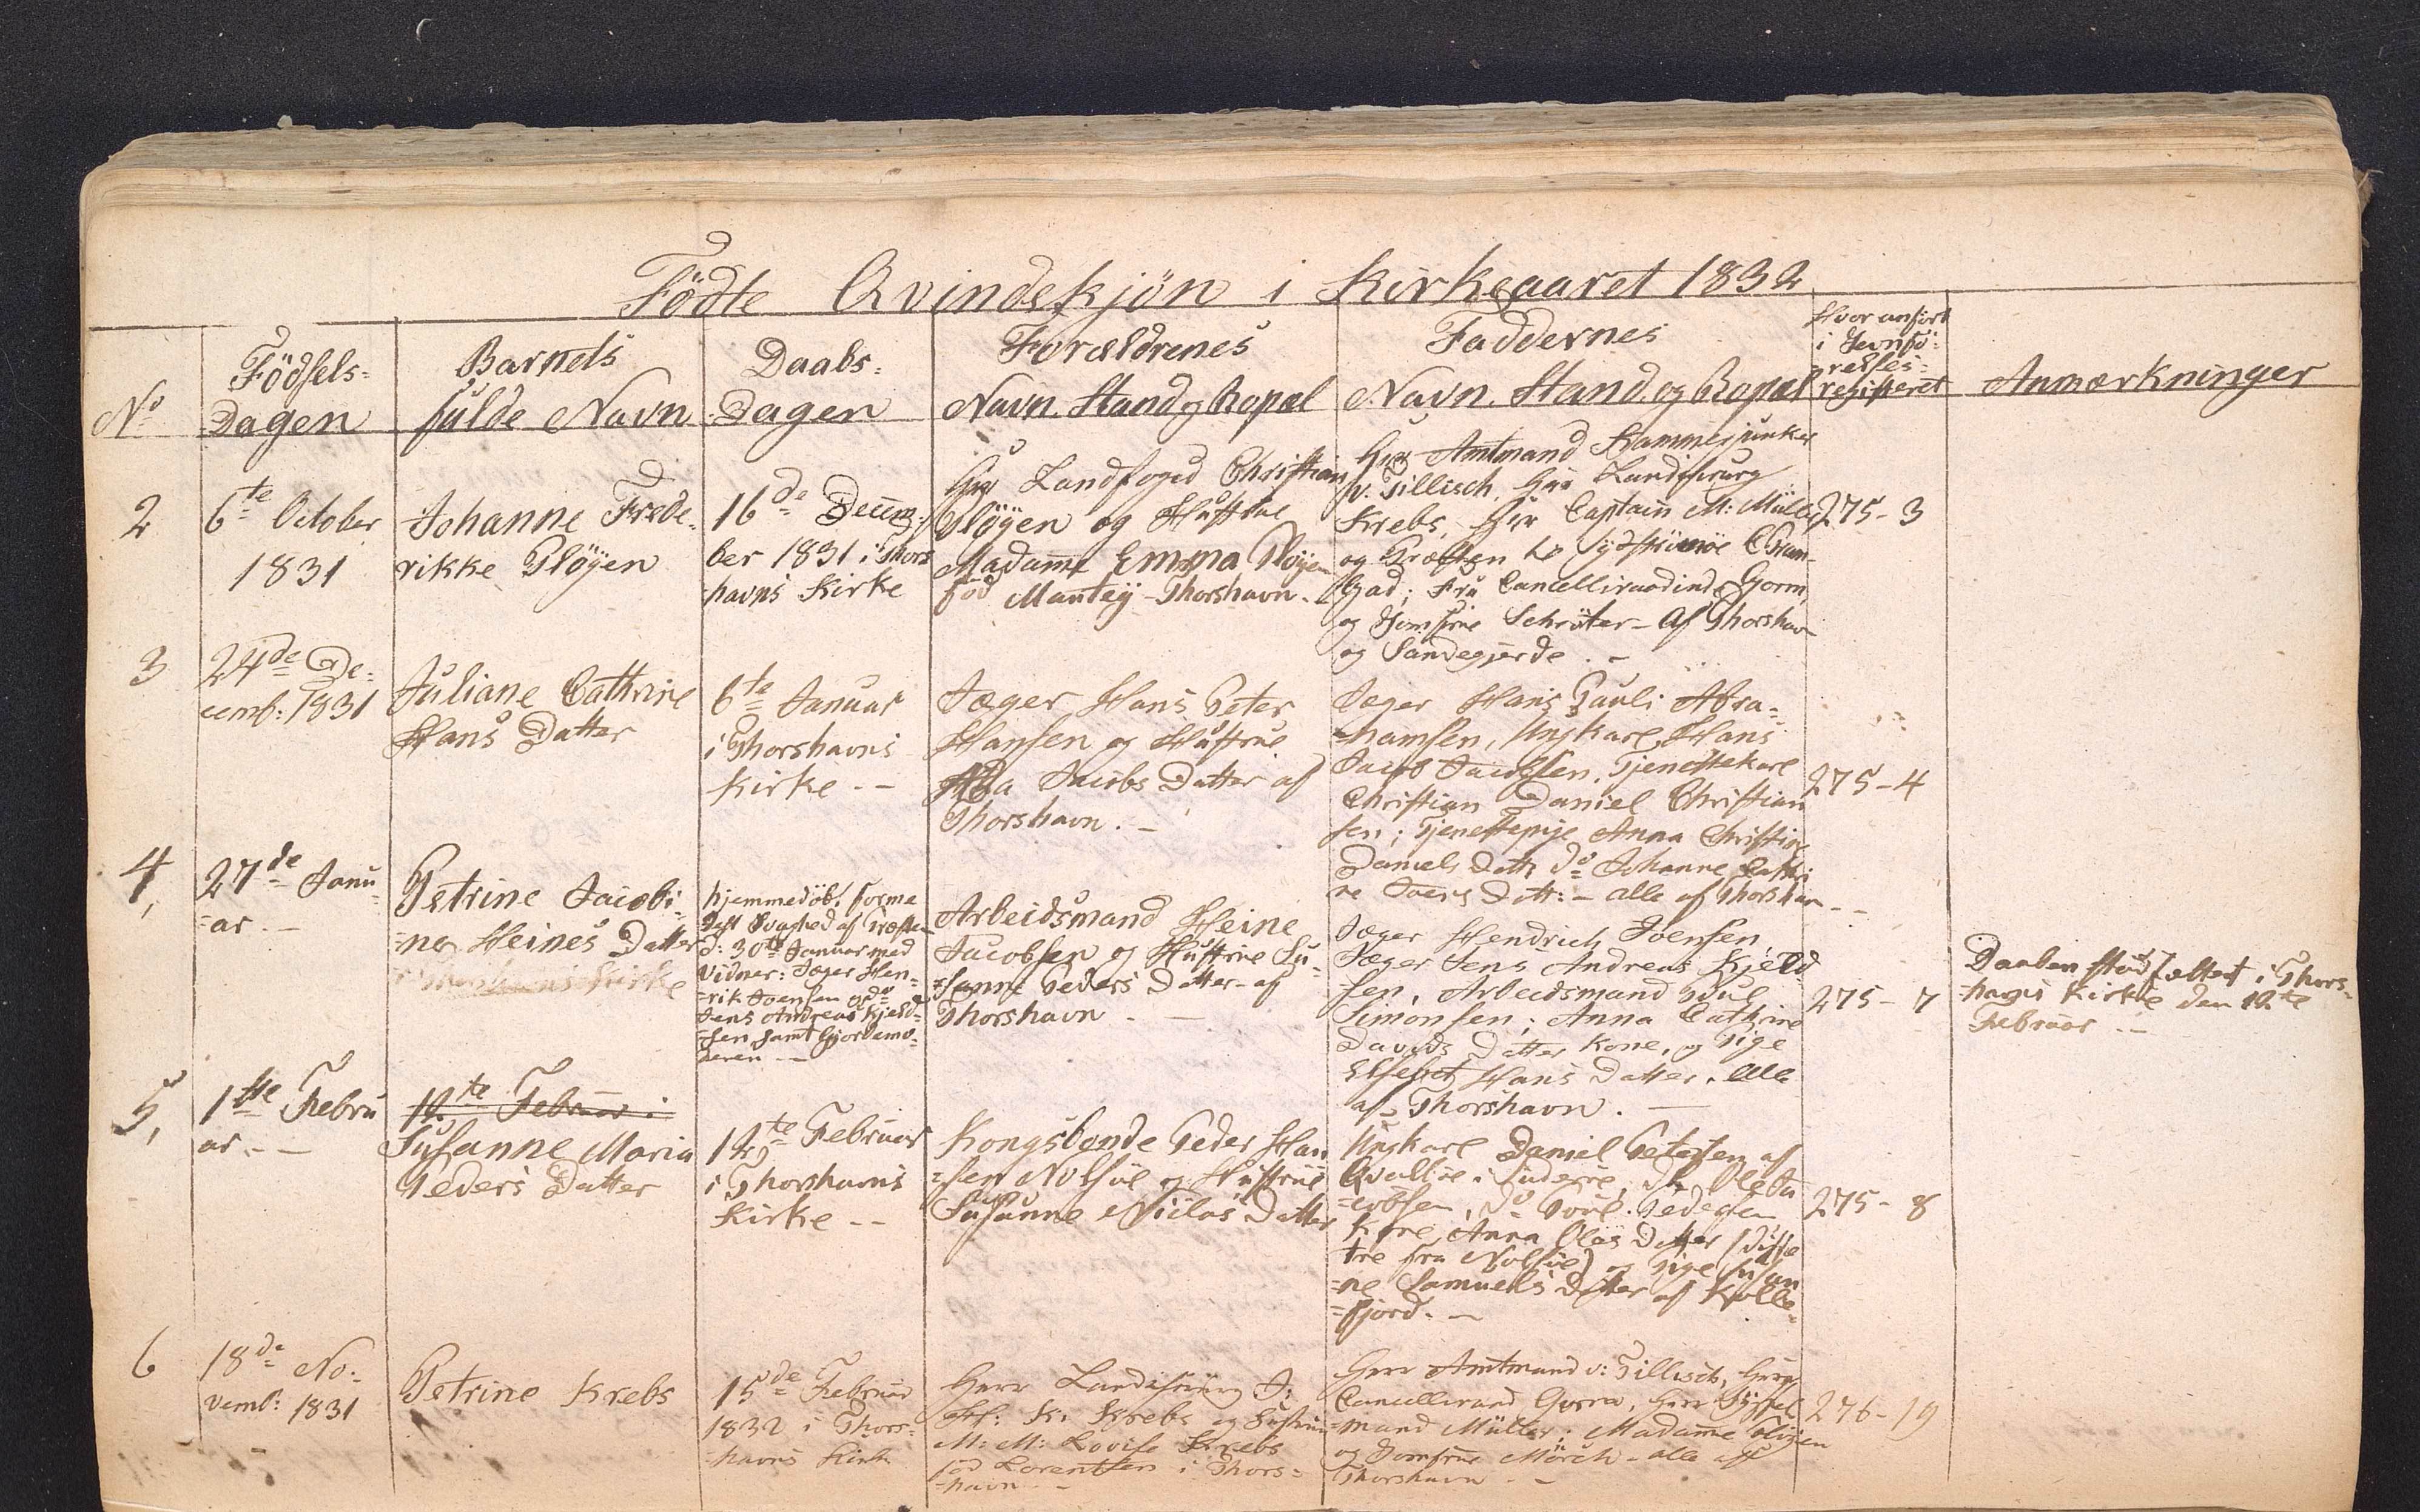 Födte Qvindekjön i Kirkeaaret 1832
No
Födsels-
Dagen
Barnets
fulde Navn
Daabs-
Dagen
Forældrenes
Navn Stand og Bopæl
Faddernes
Navn. Stand. og Bopæl
Hvor anfört
i Jevnfö-
relses-
registeret
Anmærkninger
2
6te October
1831
Johanne Frede-
rikke Plöyen
16de Decem-
ber 1831 i Thors
havns Kirke
Hr Landfoged Christian
Plöyen og Hustrue
Madame Emma Plöyen
föd Mantey - Thorshavn.
Herr Amtmand Kammerjunker
v. Tillisch, Herr Landchirurg
Krebs, Herr Captain M: Müller
og Præsten to Sydströmöe
Gad; Fru Cancelliraadinde
og Jomfrue Schröter - af Thorshavn
og Sandegjerde . -
275-3
3
24de De-
cemb: 1831
Juliane Cathrine
Hans Datter
6te Januar
i Thorshavns
Kirke . -
Jæger Hans Peter
Hansen og Hustrue
Jacobs Datter af
Thorshavn . -
Jæger Hans Pauli Abra-
=hamsen, Ungkarl Hans
Jacob Jacobsen, Tjenestekarl
Christian Daniel Christian
sen; Tjenestepige Anna Christine
Daniels Dattr do Johanne Cathri
ne Joens Datt: - alle af Thorshavn - -
275-4
4,
27de Janu
=ar . -
Petrine Jacobi-
=ne Heines Datter
hjemmedöbt forme
delst Svaghed af Præsten
d: 30te Januar med
Vidner: Jæger Hen-
=rik Joensen og do
Jens Andreas Kjeld-
=sen samt Gjordemo-
deren - -
Arbeidsmand Heine
Jacobsen og Hustrue Su-
=sanne Peders Datter - af
Thorshavn . -
Jæger Hendrich Joensen,
Jæger Jens Andreas Kjeld
=sen, Arbeidsmand Poul
Simonsen; Anna Cathrine
Davids Datter Kone, og Pige
Elsebet Hans Datter. alle
af Thorshavn . -
275-7
Daaben stadfæstet i Thors-
=havns Kirke den 12te
Februar . -
5,
1ste Febru
ar . -
12te Februar i
Susanne Maria
Peders Datter
12te Februar
i Thorshavns
Kirke - -
Kongsbonde Peder Han
=sen Nolsöe og Hustrue
Susanne Niclas Datter
Ungkarl Daniel Petersen af
Qvalböe i Suderöe, do Ole Ja
=cobsen, do Poul Pedersen
Kone Anna Olès Datter (disse
tre fra Nolsöe) og Pige Susan
=ne Samuels Datter af Kolle-
=fjord. -
275-8
6
18de No-
vemb: 1831
Petrine Krebs
15de Februar
1832 i Thors-
=havns Kirke
Herr Landchirurg J:
Krebs og Hustrue
M: M: Lovise Krebs
föd Lorentsen i Thors-
=havn - -
Herr Amtmand v: Tillisch, Herr
Cancelliraad, Herr Syssel
=mand Müller; Madame Plöyen
og Jomfrue Mörch - alle af
Thorshavn - -
276-19